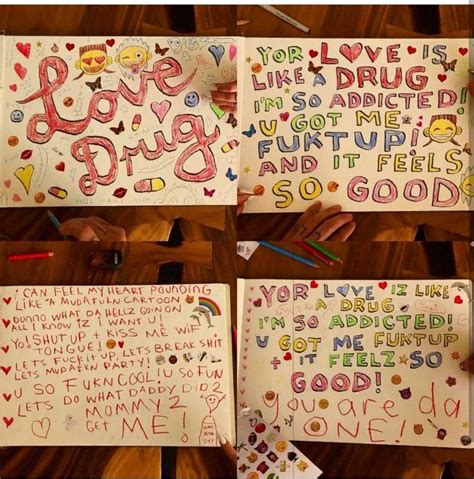 Love
Drug
YOR LOVE IS
LIKE A DRUG
I'M SO ADDICTED!
U GOT ME
FUKTUP!
AND IT FEELS
SO GOOD!
I CAN FEEL MY HEART POUNDING
LIKE A MUDAFUKN CARTOON
DUNNO WHAT DA HELLZ GOIN ON
ALL I KNOW IZ I WANT U!
YO! SHUT UP + KISS ME WIF
TONGUE!
LETS FUCK IT UP, LETS BREAK SHIT
LETS MUDAFUKN PARTY!
U SO FUKN COOL! U SO FUN
LETS DO WHAT DADDY DID 2
MOMMY 2
GET ME!
YOR LOVE IZ LIKE
A DRUG
I'M SO ADDICTED!
U GOT ME FUKTUP
+ IT FEELZ SO
GOOD!
you are da
ONE!